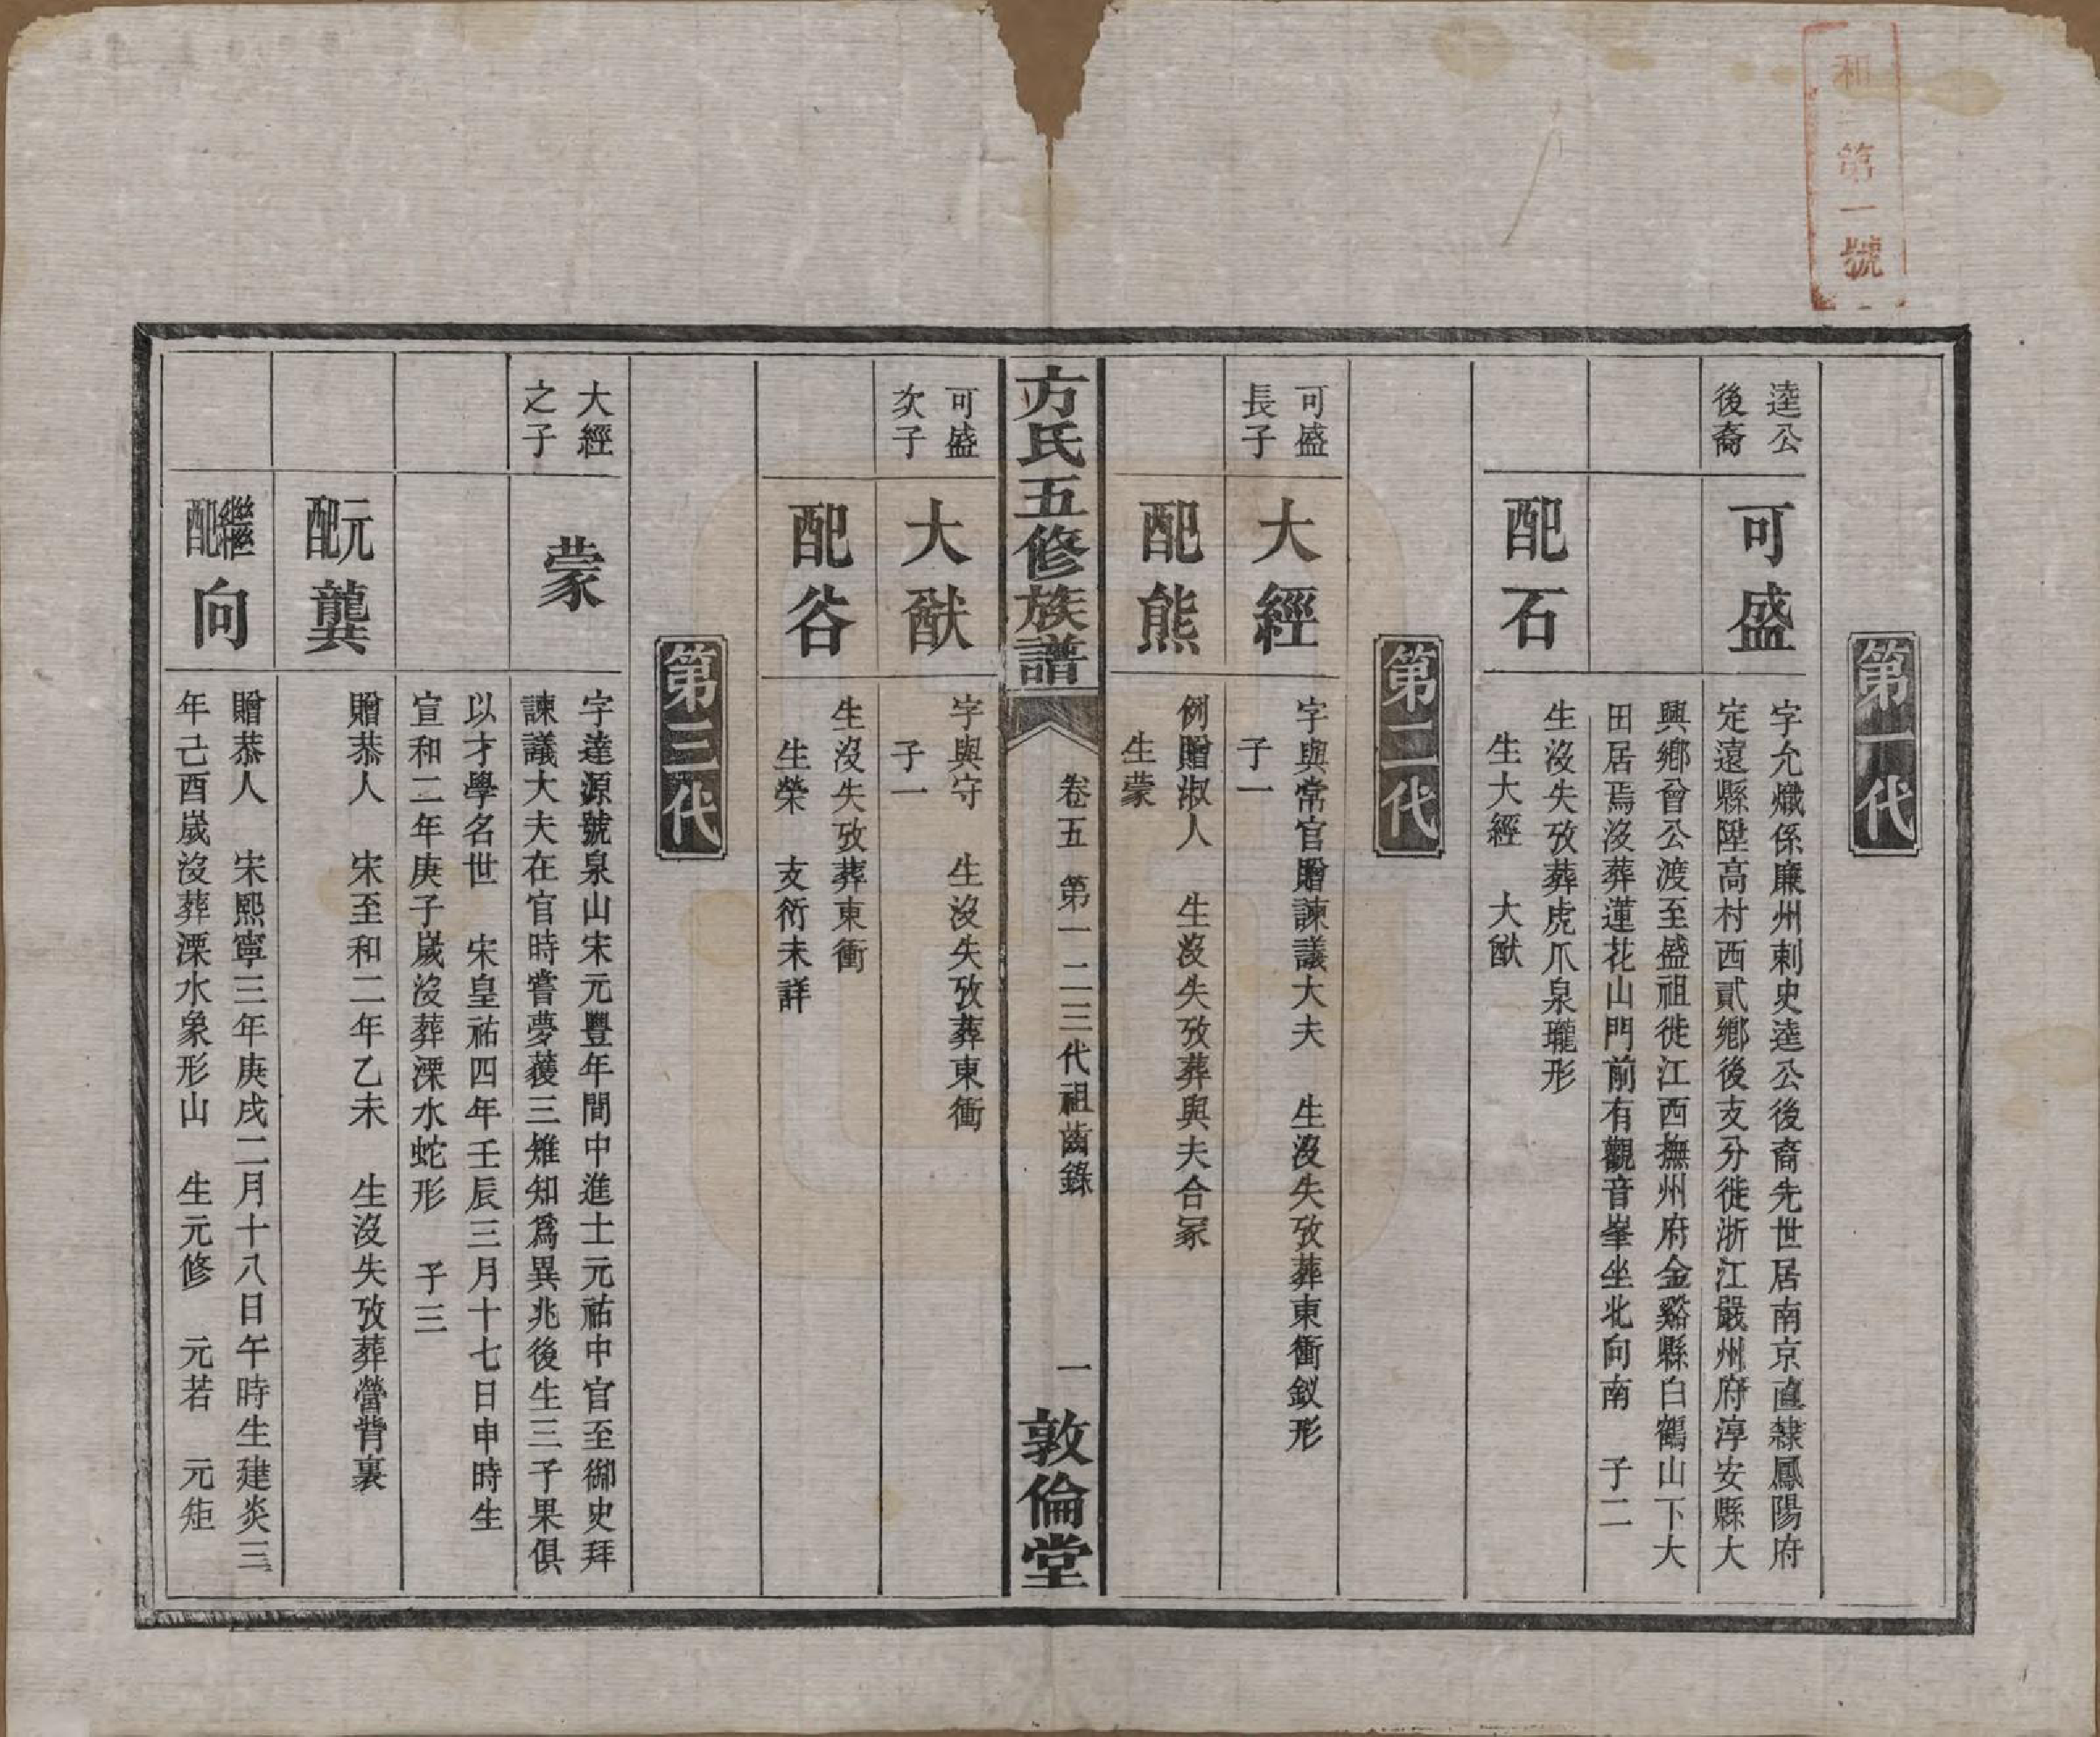 和
第一號
第一代
逵公
後裔
可盛
字允熾係廉州刺史逵公後裔先世居南京直隸鳳陽府
定遠縣陞高村西貳鄉後支分徙浙江嚴州府淳安縣大
興鄉曾公渡至盛祖徙江西撫州府金谿縣白鶴山下大
田居焉沒葬蓮花山門前有觀音峯坐北向南　子二
配石
生沒失攷葬虎爪泉瓏形
生大經　大猷
第二代
可盛
長子
大經
字與常官贈諫議大夫　生沒失攷葬東衝釵形
子一
配熊
例贈淑人　生沒失攷葬與夫合冢
生蒙
方氏五修族譜
卷五　第一二三代祖齒錄
一
敦倫堂
可盛
次子
大猷
字與守　生沒失攷葬東衝
子一
配谷
生沒失攷葬東衝
生榮　支衍未詳
第三代
大經
之子
蒙
字達源號泉山宋元豐年間中進士元祐中官至御史拜
諫議大夫在官時嘗夢蒦三雉知爲異兆後生三子果俱
以才學名世　宋皇祐四年壬辰三月十七日申時生
宣和二年庚子歲沒葬溧水蛇形　子三
元配龔
贈恭人　宋至和二年乙未　生沒失攷葬營背裏
繼配向
贈恭人　宋熙寧三年庚戌二月十八日午時生建炎三
年己酉歲沒葬溧水象形山　生元修　元若　元矩